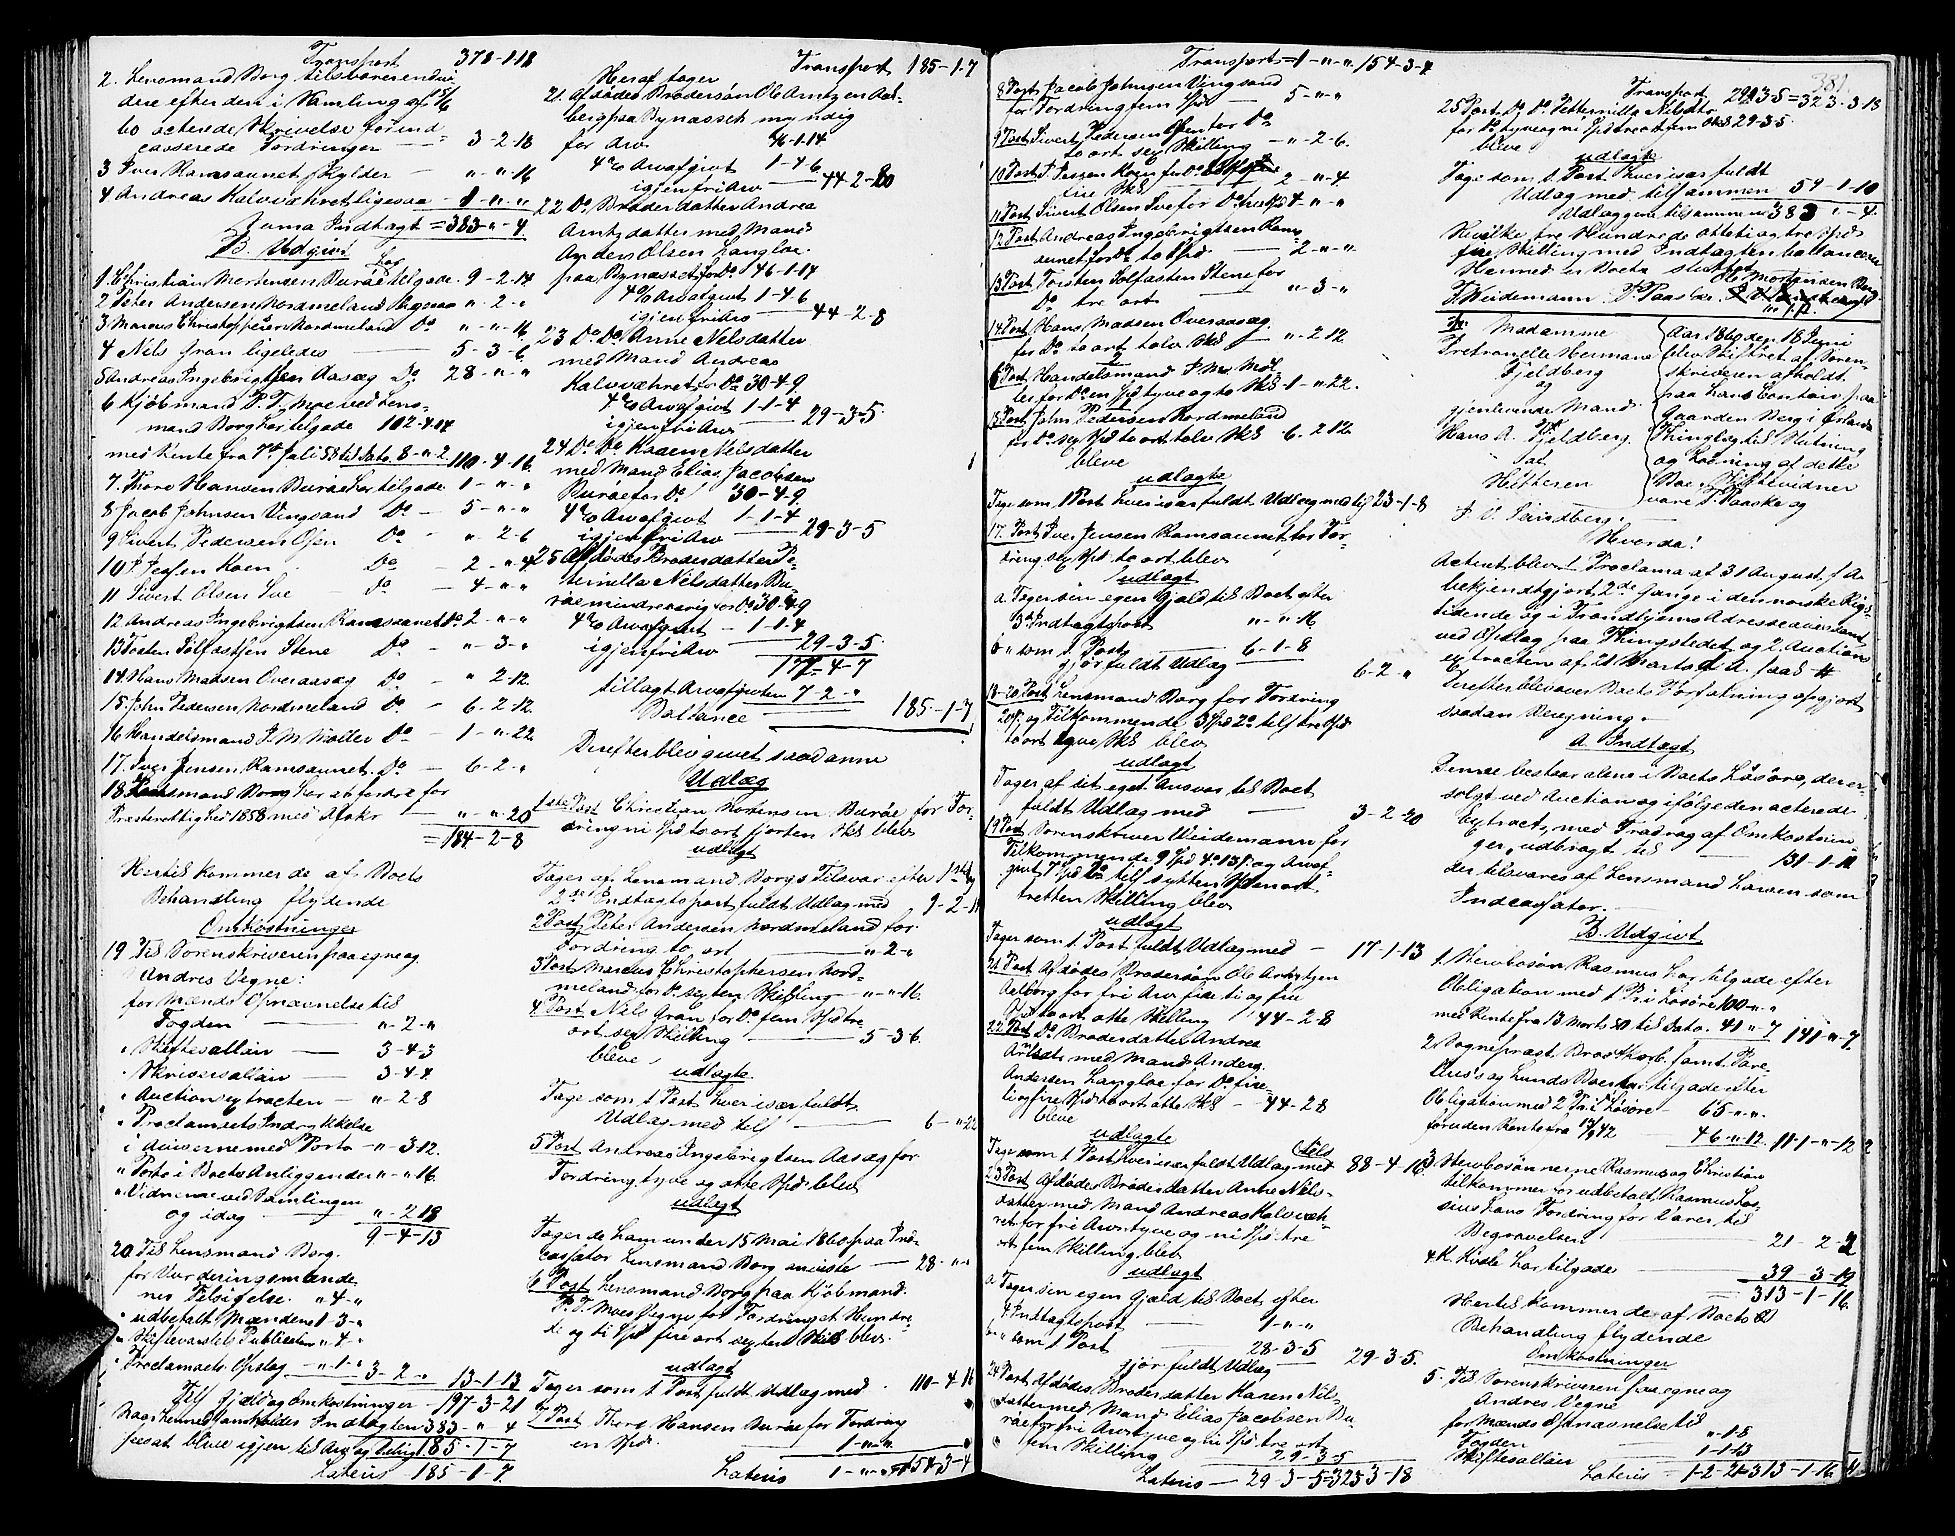 Transport 378-1-18
2. Lensmand Borg tilsvarer endvi-
dere efter den i Samling af 15/6
bo acterede Skrivelse for ind-
casserede Fordringer — 3-2-18
3 Iver Ramsaunet skylder — "-"-16
4 Andreas Kalvvæhret ligesaa - 1-"-"
Suma Indtægt = 383-"-4
B. Udgivt
1. Christian Mortensen Burøe tilgode 9-2-14
2 Peter Andersen Nordmeland "-2-"
3 Marcus Christophersen Nordmeland Do "-"-16
4 Nils Gran ligeledes — 5-3-6
5 Andreas Ingebrigtsen Aasæg Do 28-"-"
6 Kjøbmand P. T. Moe ved Lens-
mand Borg har tilgode 102-4-14
med Rente fra 7de Juli 58 til Dato 8-"-2 110-4-16
7. Thore Hansen Burøe har tilgode 1-"-"
8 Jacob Johnsen Vingsand Do - 5-"-"
9 Sivert Pedersen Osen Do - "-2-6
10 P Jessen Koen Do - 2-"-4
11 Sivert Olsen Sve - Do - 4-"-"
12 Andreas Ingebrigtsen Ramsaunet Do 2-"-"
13 Tosten Solfastsen Stene Do - "-3-"
14. Hans Madsen Overaasæg Do - "-2-12.
15. John Pedersen Nordmeland Do - 6-2-12.
16 Handelsmand J M Møller Do - 1-"-22.
17. Iver Jensen Ramsaunet. Do - 6-2-"
18. Lensmand Borg har at fordre for
Præsterettighed 1858 med Afskr — "-"-20
= 184-2-8
Hertil kommer de af Boets
Behandling flydende
Omkostninger
19 Til Sorenskriveren paa egne og
Andres Vegne:
for Mænds Opnævnelse til
Fogden — "-2-"
" Skiftesallair — 3-4-3
" Skriversallair — 3-4-4
" Auctionsextracten - "-2-8
" Proclamaets Indrykkelse
i Aviserne med Porto - "-3-12.
" Porto i Boets Anliggender "-"-16.
" Vidnerne ved Samlingen
og idag — "-2-18
9-4-13
20 Til Lensmand Borg.
for Vurderingsmænde-
nes Tilsigelse. "-4-"
" udbetalt Mændene 1-3-"
" Skiftevarslets Publication "-4-"
" Proclamaets Opslag - "-1-" 3-2-" 13-1-13
Tils Gjæld og Omkostninger - 197-3-21
Naar hermed sammenholdes Indtægten 383-"-4
sees at blive igjen til Arv og Deling 185-1-7
Lateris 185-1-7.
Transport 185-1-7
Heraf tager
21. Afdødes Brodersøn Ole Arntzen Aal-
berg paa Bynæsset myndig
for Arv 46-1-14
4% Arvafgivt 1-4-6
igjen fri Arv — 44-2-8
22 Do Broderdatter Andrea
Arntzdatter med Mand
Anders Olsen Langløe
paa Bynæsset for Do 46-1-14
4% Arvafgivt 1-4-6
igjen fri Arv — 44-2-8
23 Do Do Anne Nilsdatter
med Mand Andreas
Kalvvæhret for Do 30-4-9
4% Arvafgivt 1-1-4
igjen fri Arv — 29-3-5
24 Do Do Karen Nilsdatter
med Mand Elias Jacobsen
Burøe for Do 30-4-9
4% Arvafgivt 1-1-4
igjen fri Arv — 29-3-5
25 Afdødes Broderdatter Pe-
ternilla Nilsdatter Bu-
røe mindreaarig for Do 30-4-9
4% Arvafgivt - 1-1-4
igjen fri Arv — 29-3-5
177-4-7
tillagt Arvafgivten 7-2-"
Ballance — 185-1-7
Derefter blev givet saadanne
Udlæg
1ste Post Christian Mortensen Burøe for For-
dring ni Spd to ort fjorten Sk blev
udlagt
Tager af Lensmand Borgs Tilsvar efter 1ste og
2den Indtægtspost fuldt Udlæg med 9-2-14
2 Post Peter Andersen Nordmeland for
Fordring to ort — "-2-"
3 Post Marcus Christophersen Nord-
meland for Do sexten Skilling - "-"-16.
4 Post Nils Gran for Do fem Spd tre
ort sex Skilling — 5-3-6.
bleve
udlagte.
Tage som 1 Post hver især fuldt
Udlæg med tils — 6-"-22
5 Post Andreas Ingebrigtsen Aasæg for
Fordring tyve og otte Spd blev
udlagt
Tager de ham under 15 Mai 1860 paa Ind-
cassator Lensmand Borg anviste — 28-"-"
6 Post Lensmand Borg paa Kjøbmand
P. T. Moes Vegne for Fordring et Hundre-
de og ti Spd fire ort sexten Sk blev.
udlagt
Tager som 1 Post fuldt Udlæg med . 110-4-16
7 Post Thore Hansen Burøe for Fordring
en Spd. — 1-"-"
Lateris 1-"-" 154-3-4
Transport = 1-"-" 154-3-4
8 Post Jacob Johnsen Vingsand
for Fordring fem Spd — 5-"-"
9 Post Sivert Pedersen Osen for Do
to ort sex Skilling — "-2-6.
10 Post P. Jessen Koen for Do
fire Sk — 2-"-4
11 Post Sivert Olsen Sve for Do fire Spd 4-"-"
12 Post Andreas Ingebrigtsen Ram-
saunet for Do to Spd — 2-"-"
13 Post Torsten Solfastsen Stene for
Do tre ort — "-3-"
14 Post Hans Madsen Overaasæg
for Do to ort tolv Sk — "-2-12
16 Post Handelsmand J. M. Møl-
ler for Do en Spd tyve og to Sk - 1-"-22.
15 Post John Pedersen Nordmeland
for Do sex Spd to ort tolv Sk 6-2-12.
bleve
udlagte
Tage som 1 Post hver især fuldt Udlæg med tils 23-1-8
17. Post Iver Jensen Ramsaunet for For-
dring sex Spd to ort blev
udlagt
a. Tager sin egen Gjæld til Boet efter
3die Indtægtspost "-"-16
b " som 1. Post 6-1-8
gjør fuldt Udlæg 6-2-"
18-20 Post Lensmand Borg for Fordring
20 s og Tilkommende 3 Spd 2 o tils tre Spd
to ort tyve Sk blev
udlagt
Tager af sit eget Ansvar til Boet
fuldt Udlæg med — 3-2-20
19 Post Sorenskriver Weidemann for
Tilkommende 9 Spd 4 o 13 s. og Arvaf-
givt 7 Spd 2 o tils sytten Spd en ort
tretten Skilling blev
udlagt
Tager som 1 Post fuldt Udlæg med — 17-1-13
21 Post Afdødes Brodersøn Ole Arntzen
Aalberg for fri Arv fire ti og fire
Spd to ort otte Skilling 44-2-8
22 Post Do Broderdatter Andrea
Arntzdt. med Mand Anders
Andersen Langløe for Do fire-
ti og fire Spd to ort otte Sk — 44-2-8
bleve
udlagte
Tage som 1 Post hver især fuldt Udlæg med tils 88-4-16
23 Post Afdødes Broderdatter Anne Nils-
datter med Mand Andreas Kalvvæh-
ret for fri Arv tyve og ni Spd tre
ort fem Skilling blev
udlagt
a Tager sin egen Gjæld til Boet efter
4 Indtægtspost — 1-"-"
b " som 1 Post — 28-3-5
gjør fuldt Udlæg — 29-3-5.
24 Post Afdødes Broderdatter Karen Nils-
datter med Mand Elias Jacobsen Bu-
røe for fri Arv tyve og ni Spd tre ort
fem Skilling 29-3-5
Lateris — 29-3-5=323-3-18
381
Transport 29-3-5=323-3-18
25 Post Do Do Petternilla Nilsdtr
for Do tyve og ni Spd tre ort fem Sk 29-3-5.
bleve
udlagte
Tage som 1. Post hver især fuldt
Udlæg med tilsammen 59-1-10
Udlæggene tilsammen 383-"-4.
Hvilke tre Hundrede otteti og tre Spd
fire Skilling med Indtægten ballancerer
Hermed er Boets sluttet
Ole Mortensen Borg
F. Weidemann. D. Paaske.
m. f. P.
Ao 1860 den 18 Juni
Madamme
Petronelle Hermans
Fjeldberg
og
gjenlevende Mand
Hans A. Fjeldberg
sal.
Hitteren
blev Skiftet af Soren-
skriveren afholdt
paa hans Contoir paa
Gaarden Berg i Ørlands
Thinglag til Slutning
og Lodning af dette
Boe. Skiftevidner
vare D. Paaske og
J. V. Lundberg.
Hvorda!
Acteret blev 1 Proclama af 31 August f. A.
bekjendtgjort 2de Gange i den norske Rigs-
tidende og i Trondhjems Adresseavis samt
ved Opslag paa Thingstedet, og 2 Auctions
extracten af 21 Marts d. A. saa #
Derefter blev over Boets Forfatning opgjort
saadan Beregning.
A. Indtægt
Denne bestaar alene i Boets Løsøre, der er
solgt ved Auction og ifølge den acterede
Extract, med Fradrag af Omkostnin-
ger, udbragt til — 131-1-11
der tilsvares af Lensmand Larsen som
Indcassator.
B. Udgivt
1. Stervbosøn Rasmus har tilgode efter
Obligation med 1 Pr. i Løsøre 100-"-"
med Rente fra 13 Marts 50 til Dato. 41-"-7 141-"-7.
2. Sognepræst Brochs
og Lunds Boe har tilgode efter
Obligation med 2 Pr. i Løsøre - 65-"-"
foruden Rente fra 42 — 46-"-12. 111-"-12
3 Stervbosønnerne Rasmus og Christian
tilkommer for udbetalt, Rasmus
Fordring for Varer til
Begravelsen — 21-2-2
4 K. Kvale har tilgode — 39-3-19
313-1-16.
Hertil kommer de af Boets
Behandling flydende
Omkostninger
5. Til Sorenskriveren paa egne og
Andres Vegne
for Mænds Opnævnelse til
Fogden — "-1-8
Skiftesallair — 1-1-13
Lateris - 1-2-21=313-1-16